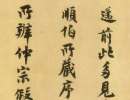 遂前此多見
順伯所藏序
所辨仲宗假